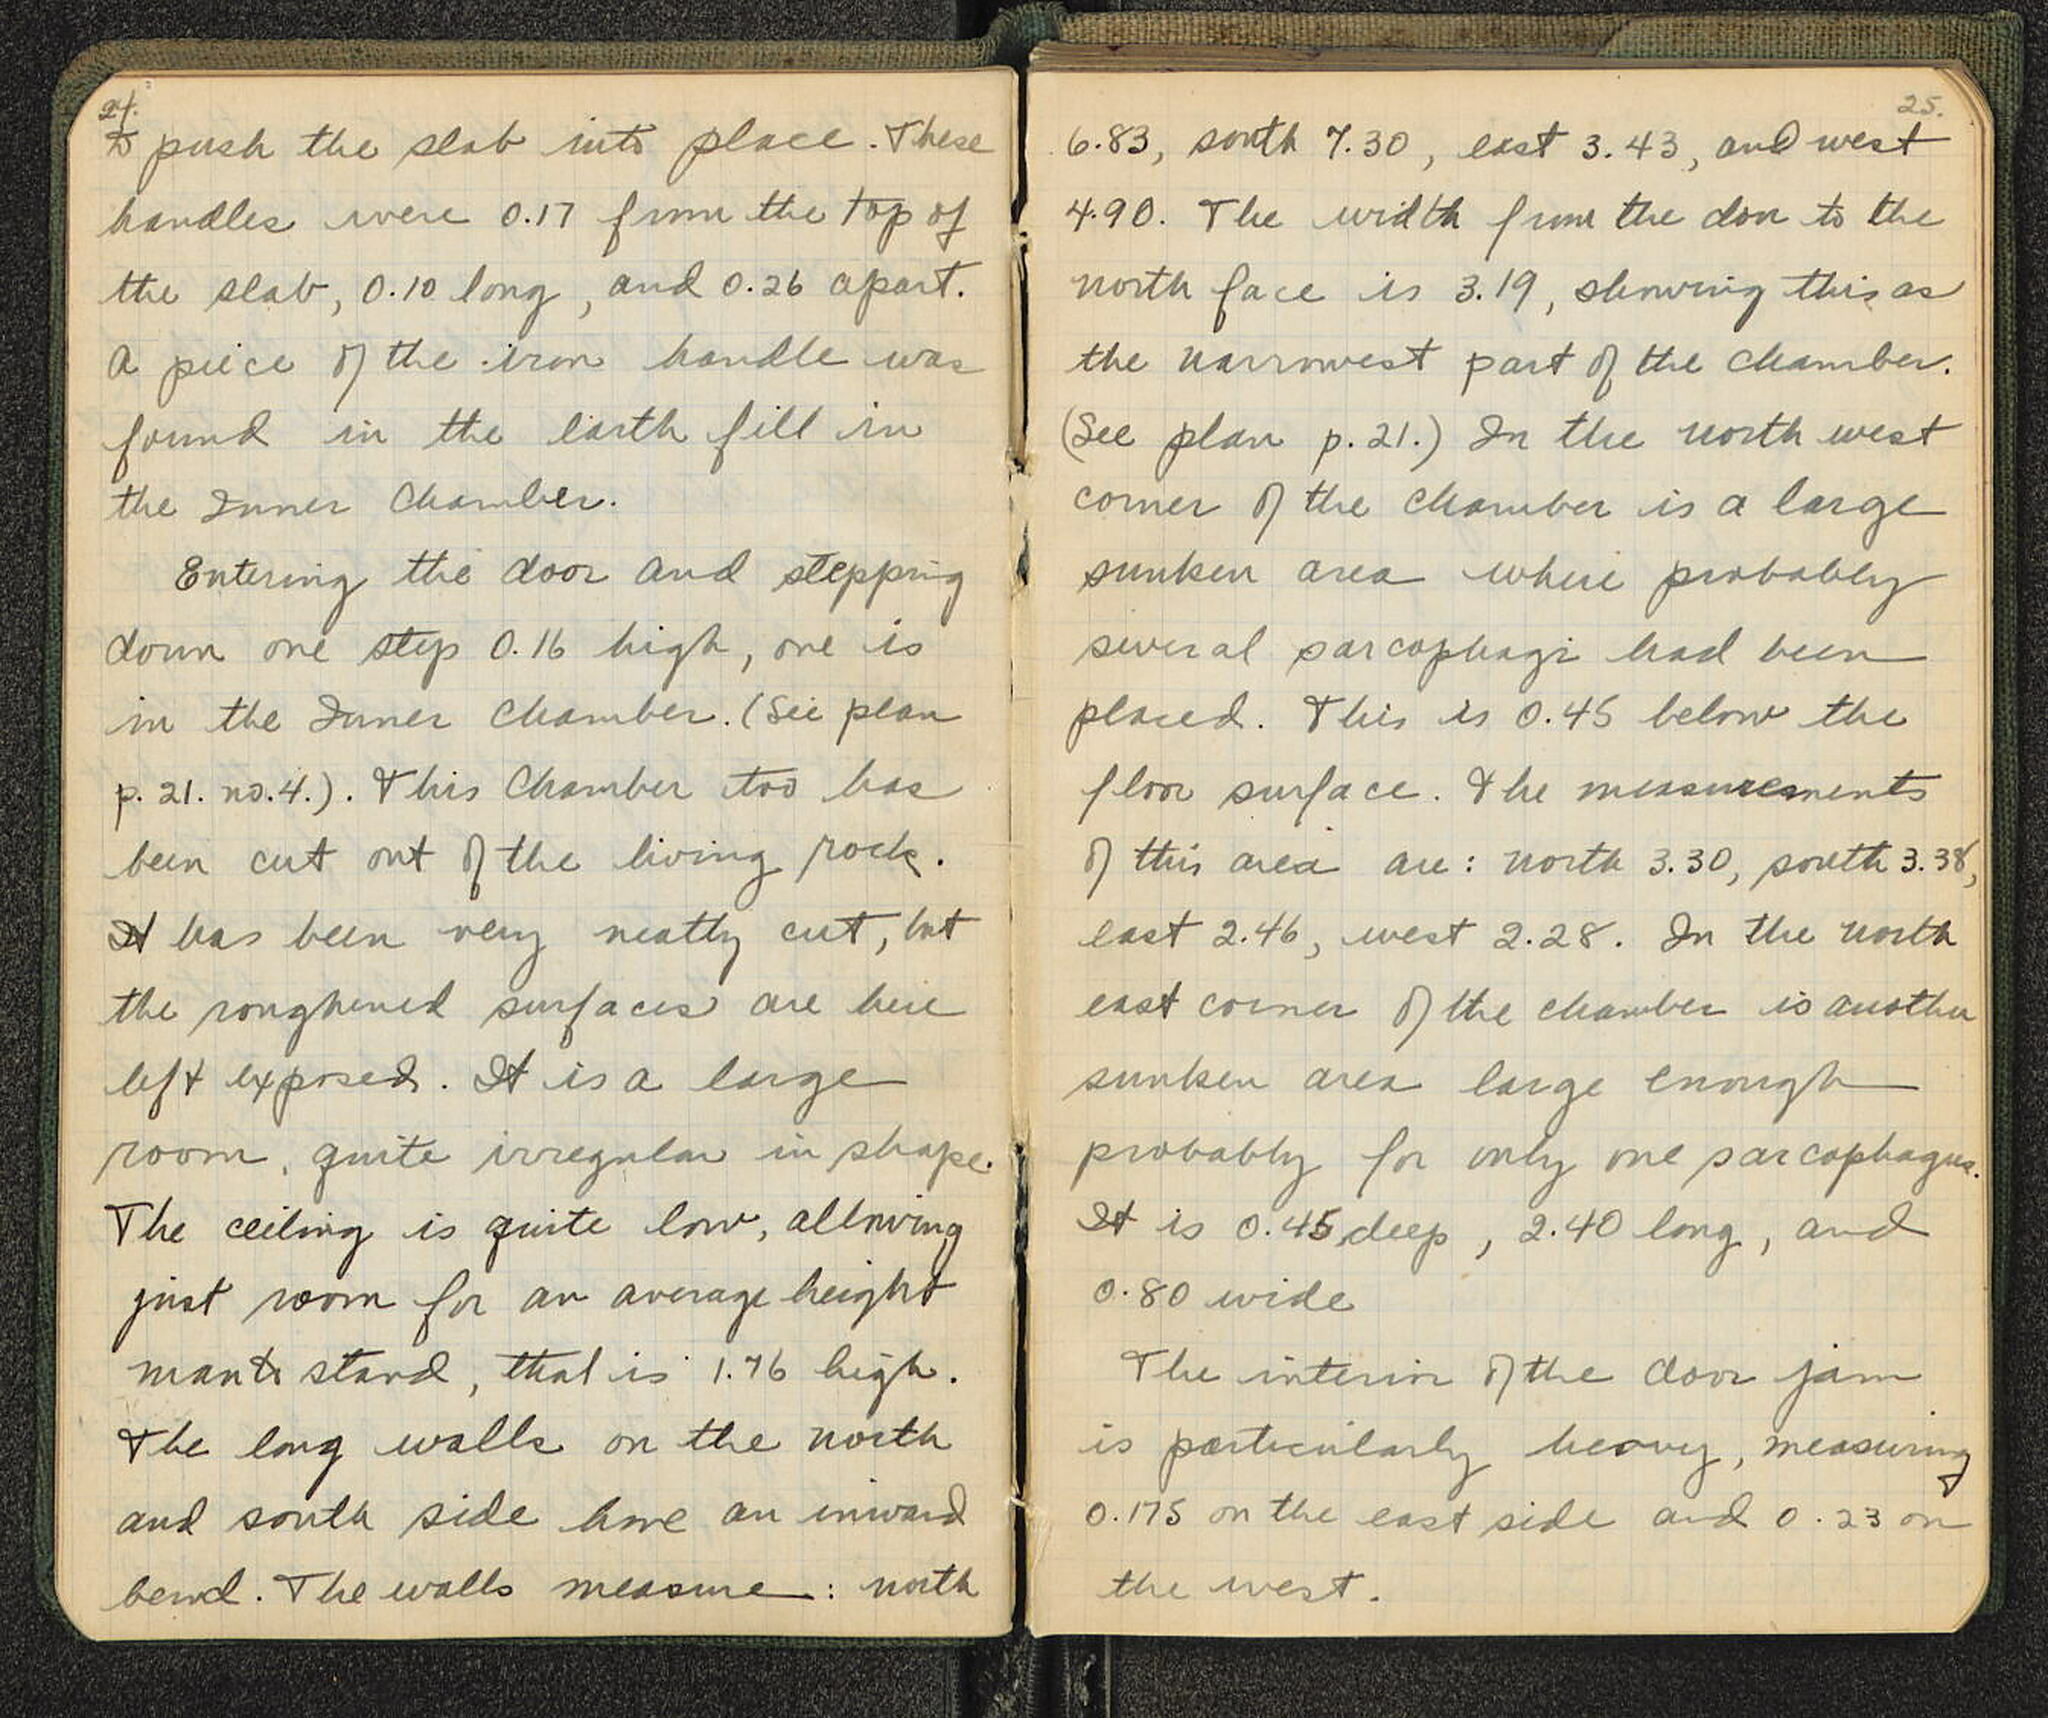 24.
to push the slab into place. These
handles were 0.17 from the top of
the slab, 0.10 long, and 0.26 apart.
A piece of the iron handle was
found in the earth fill in
the Inner Chamber.
Entering the door and stepping
down one step 0.16 high, one is
in the Inner Chamber. (See plan
p. 21. no. 4.). This Chamber too has
been cut out of the living rock.
It has been very neatly cut, but
the roughened surfaces are here
left exposed. It is a large
room, quite irregular in shape.
The ceiling is quite low, allowing
just room for an average height
man to stand, that is 1.76 high.
The long walls on the north
and south side have an inward
bend. The walls measure: north
25.
6.83, south 7.30, east 3.43, and west
4.90. The width from the door to the
north face is 3.19, showing this as
the narrowest part of the chamber.
(See plan p. 21.) In the north west
corner of the chamber is a large
sunken area where probably
several sarcophagi had been
placed. This is 0.45 below the
floor surface. The measurements
of this area are: north 3.30, south 3.38,
east 2.46, west 2.28. In the north
east corner of the chamber is another
sunken area large enough
probably for only one sarcophagus.
It is 0.45 deep, 2.40 long, and
0.80 wide
The interior of the door jam
is particularly heavy, measuring
0.175 on the east side and 0.23 on
the west.